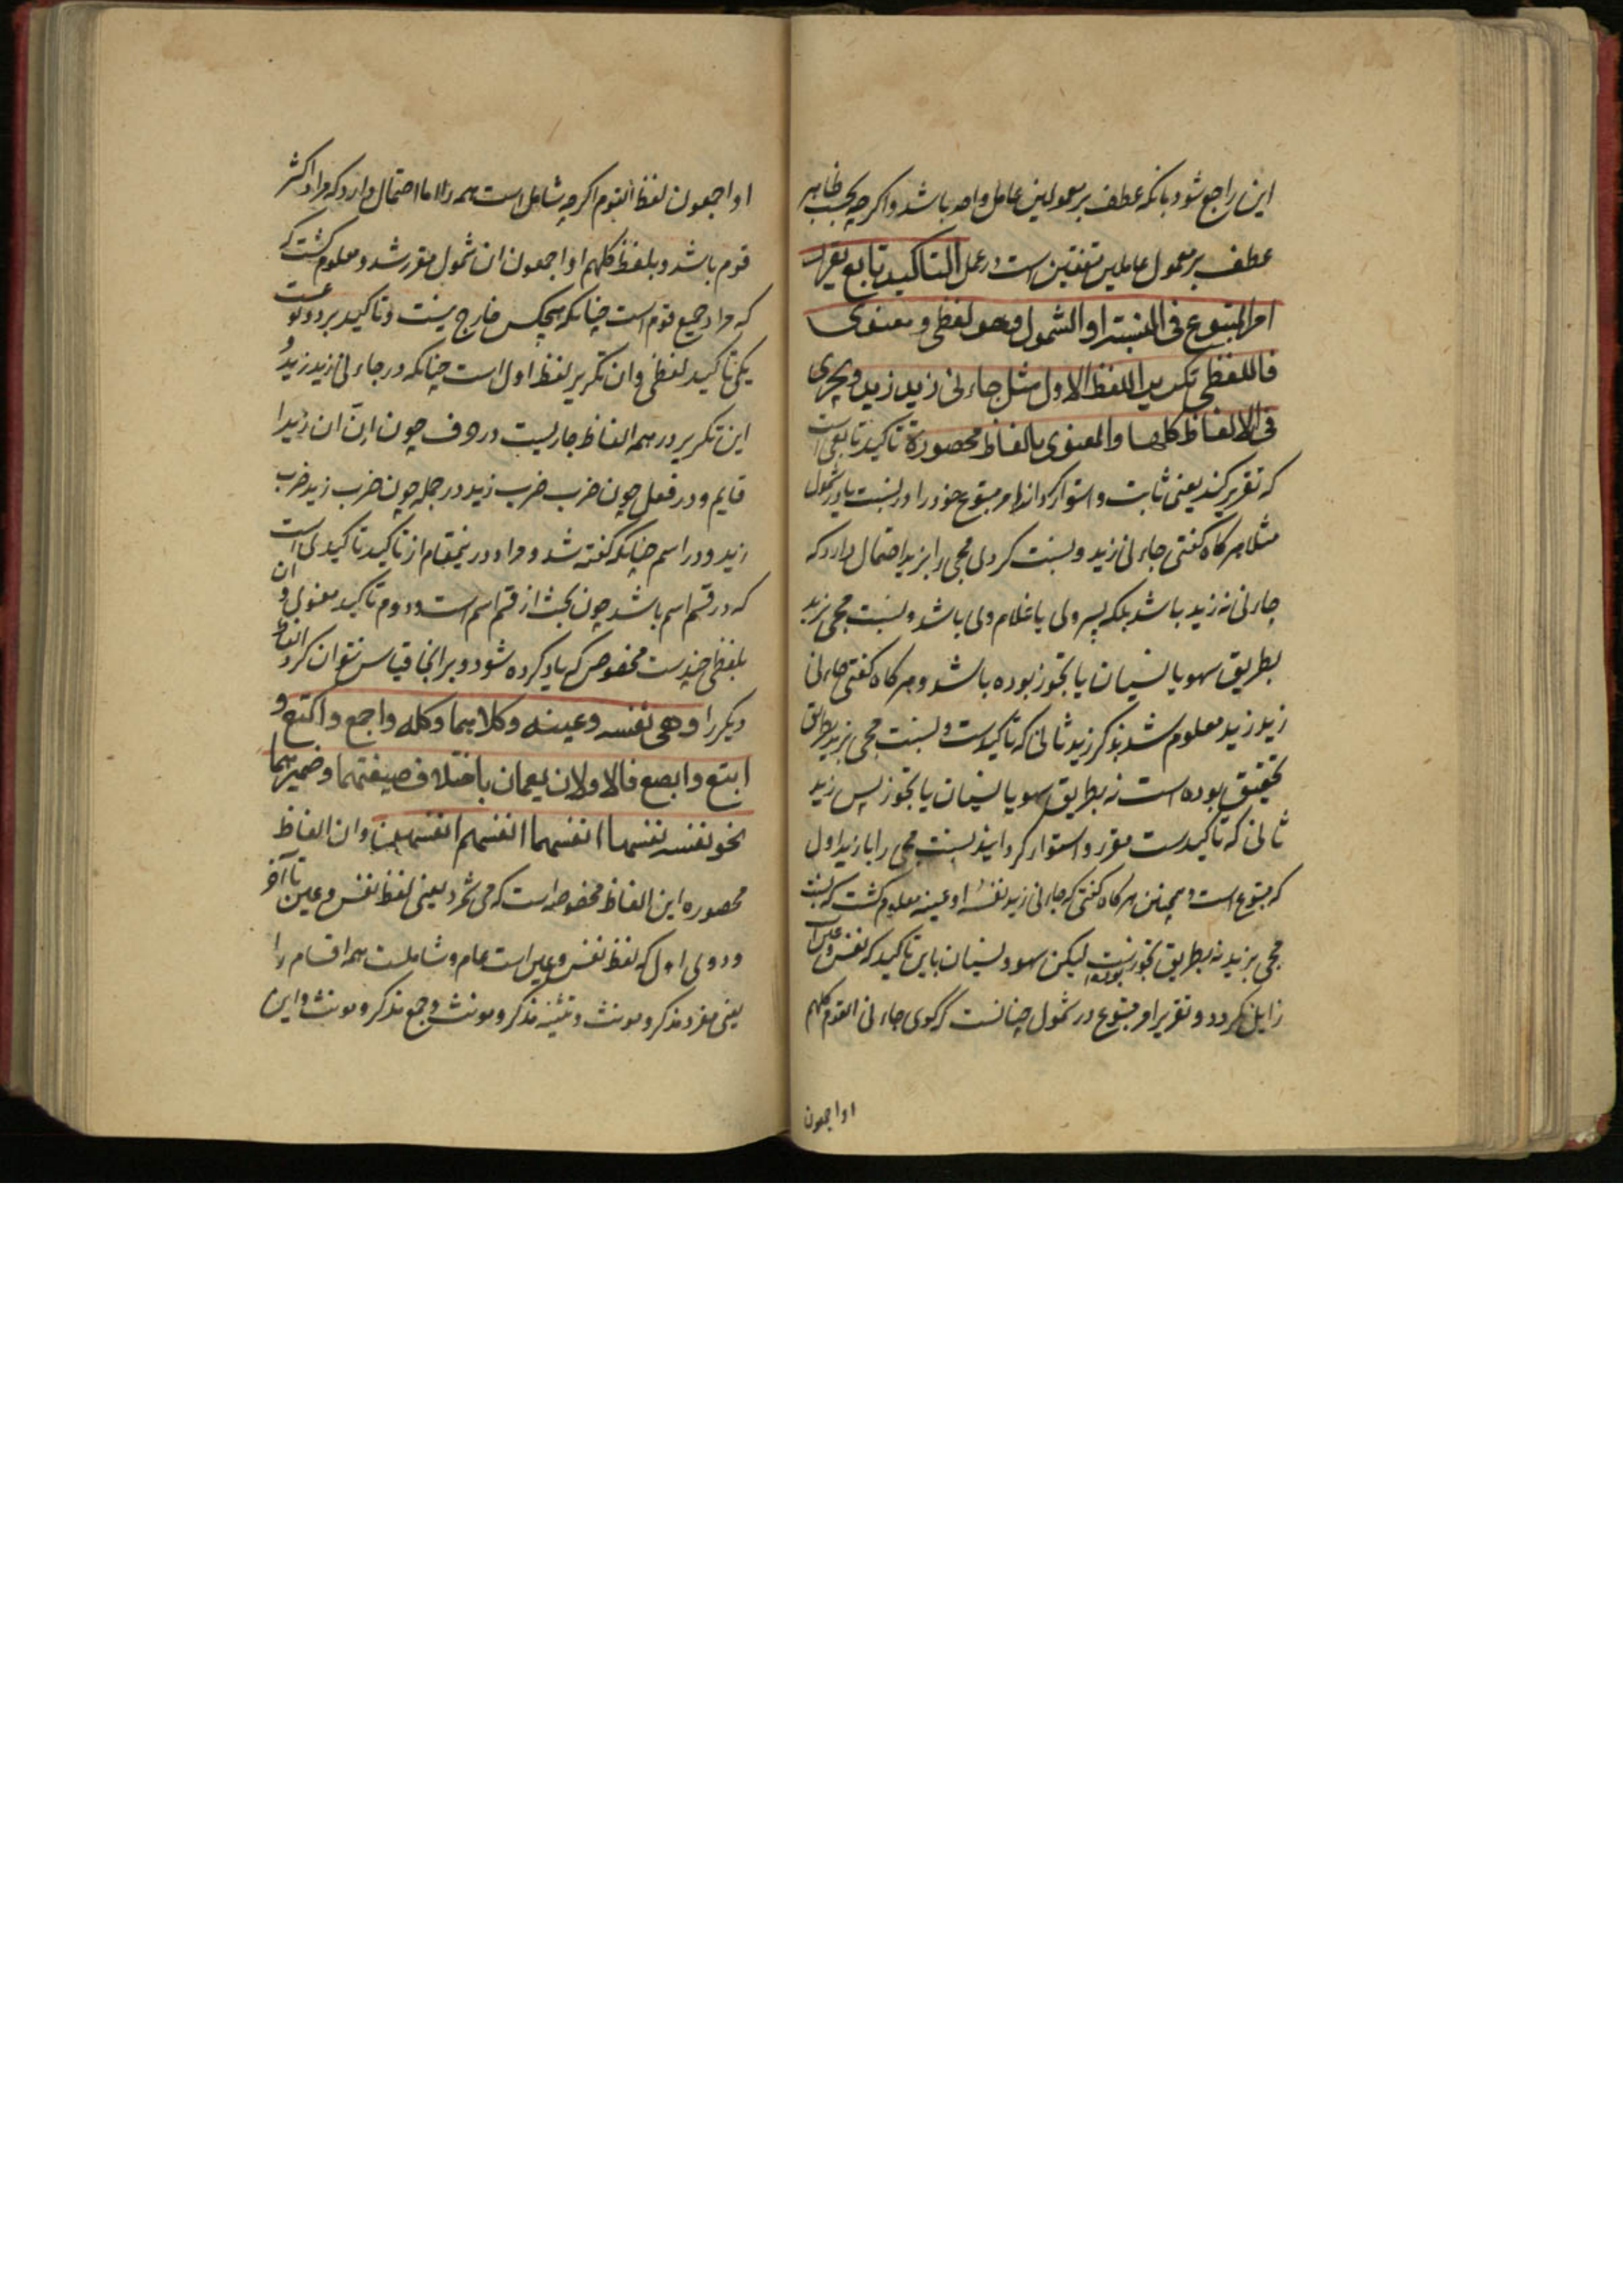 این راجع شود بانکه عطف بر معمولین عامل واحد باشد و اکرچه بحسب ظاهر
عطف بر معمول عاملین متفقین است در عمل التاکید تابع یقرر
امر المتبوع فی النسبة او الشمول وهو لفظی و معنوی
فاللفظی تکریر اللفظ الاول مثل جاءنی زید زید ویجری
فی الالفاظ کلها والمعنوی بالفاظ محصورة تاکید تابعی است
که تقریر کند یعنی ثابت و استوار کرداند امر متبوع خود را در نسبت یا در شمول
مثلا هر کاه کفتی جاءنی زید و نسبت کردی مجی را بزید احتمال دارد که
جاءنی نه زید باشد بلکه پسر وی یا غلام وی باشد و نسبت مجی بزید
بطریق سهو یا نسیان یا تجوز بوده باشد و هر کاه کفتی جاءنی
زید زید معلوم شد بذکر زید ثانی که تاکیدست و نسبت مجی بزید بطریق
تحقیق بوده است نه بطریق سهو یا نسیان یا تجوز پس زید
ثانی که تاکیدست مقرر و استوار کردانید نسبت مجی را با زید اول
که متبوع است و همچنین هر کاه کفتی که جاءنی زید نفسه او عینه معلوم کشت که نسبت
مجی بزید نه بطریق تجوز بوده است لیکن سهو و نسیان باین تاکید که نفس و عین است
زایل نکردد و تقریر امر متبوع در شمول چنانست که کوی جاءنی القوم کلهم
او اجمعون
او اجمعون لفظ القوم اکرچه شامل است همه را اما احتمال دارد که مراد اکثر
قوم باشد و بلفظ کلهم او اجمعون ان شمول مقرر شد و معلوم کشت که
که مراد جمیع قوم است چنانکه هیچکس خارج نیست و تاکید بر دو نوعست
یکی تاکید لفظی و ان تکریر لفظ اول است چنانکه در جاءنی زید زید و
این تکریر در همه الفاظ جاریست در حروف چون انّ ان زیدا
قایم و در فعل چون ضرب ضرب زید در جمله چون ضرب زید ضرب
زید و در اسم چنانکه کفته شد و مراد درینمقام از تاکید تاکیدی است
که در قسم اسم باشد چون بحث از قسم اسم است و دوم تاکید معنوی و ان
بلفظی چندست مخصوص که یاد کرده شود و برانها قیاس نتوان کرد الفاظ
دیکر را و هی نفسه وعینه وکلاهما وکله واجمع واکتع و
ابتع وابصع فالاولان یعمان باختلاف صیغتهما وضمیرهما
نحو نفسه نفسها انفسهما انفسهم انفسهن وان الفاظ
محصوره این الفاظ مخصوصه است که می شمرد یعنی لفظ نفس و عین تا آخر
و دوی اول که لفظ نفس و عین است عام و شاملست همه اقسام را
یعنی مفرد مذکر و مونث و تثنیه مذکر و مونث و جمع مذکر و مونث و این